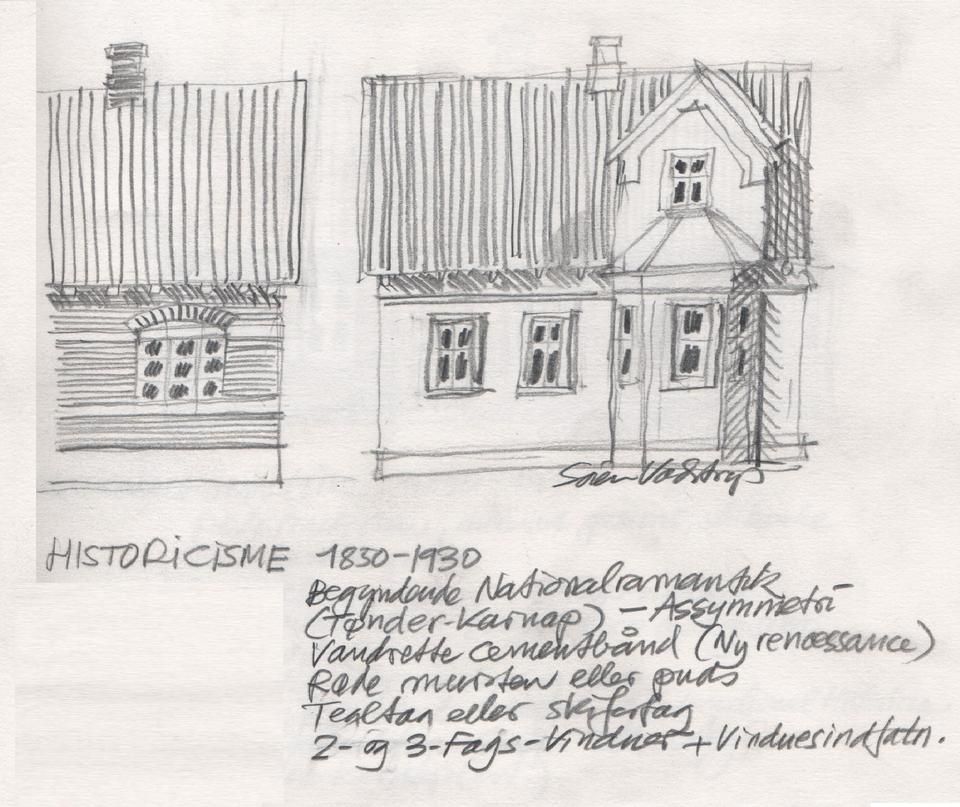 Søren Vadstrup
HISTORICISME 1850-1930
Begyndende Nationalramantik
(Tønder-Karnap) - Assymmetri -
Vandrette cementbånd (Ny renæssance)
Røde mursten eller puds
Tegltag eller skifertag
2- og 3-Fags-Vinduer + Vinduesindfatn.